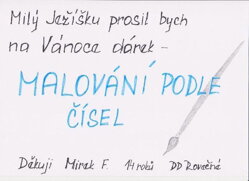 Milý Ježíšku prosil bych
na Vánoce dárek -
MALOVÁNÍ PODLE
ČÍSEL
Děkuji Mirek F. 14 roků DD Rovečné